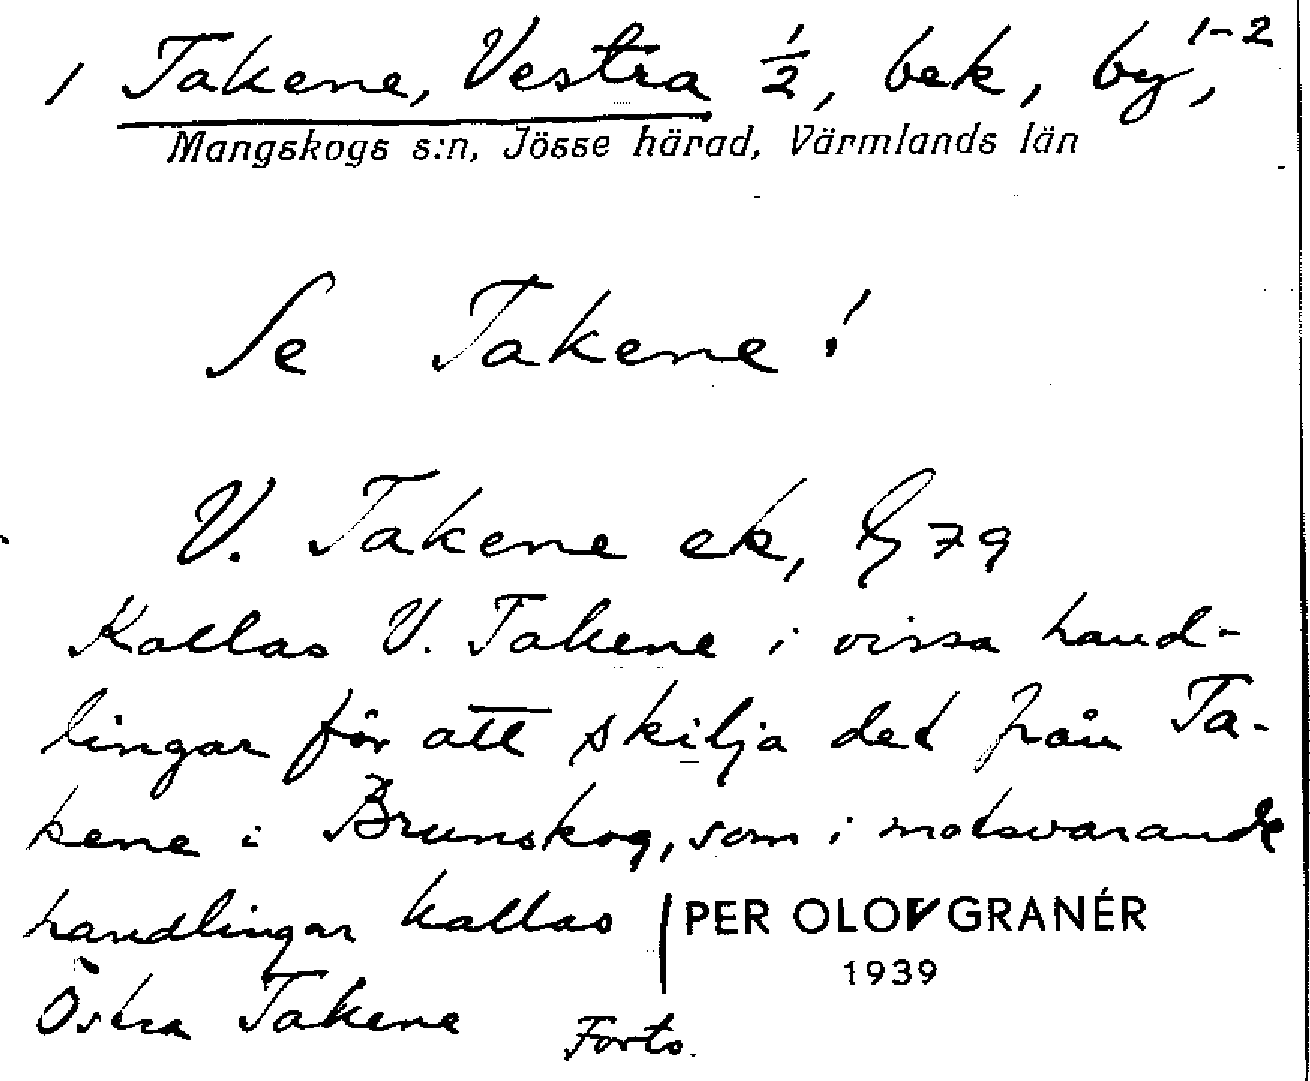 1 Takene, Vestra ½, bek, by, 1-2
Mangskogs s:n, Jösse härad, Värmlands län
Se Takene!
V. Takene ek, 79
Kallas V. Takene i vissa hand-
lingar för att skilja det från Ta-
kene i Brunskog, som i motsvarande
handlingar kallas
Östra Takene
PER OLOV GRANÉR
1939
Forts.